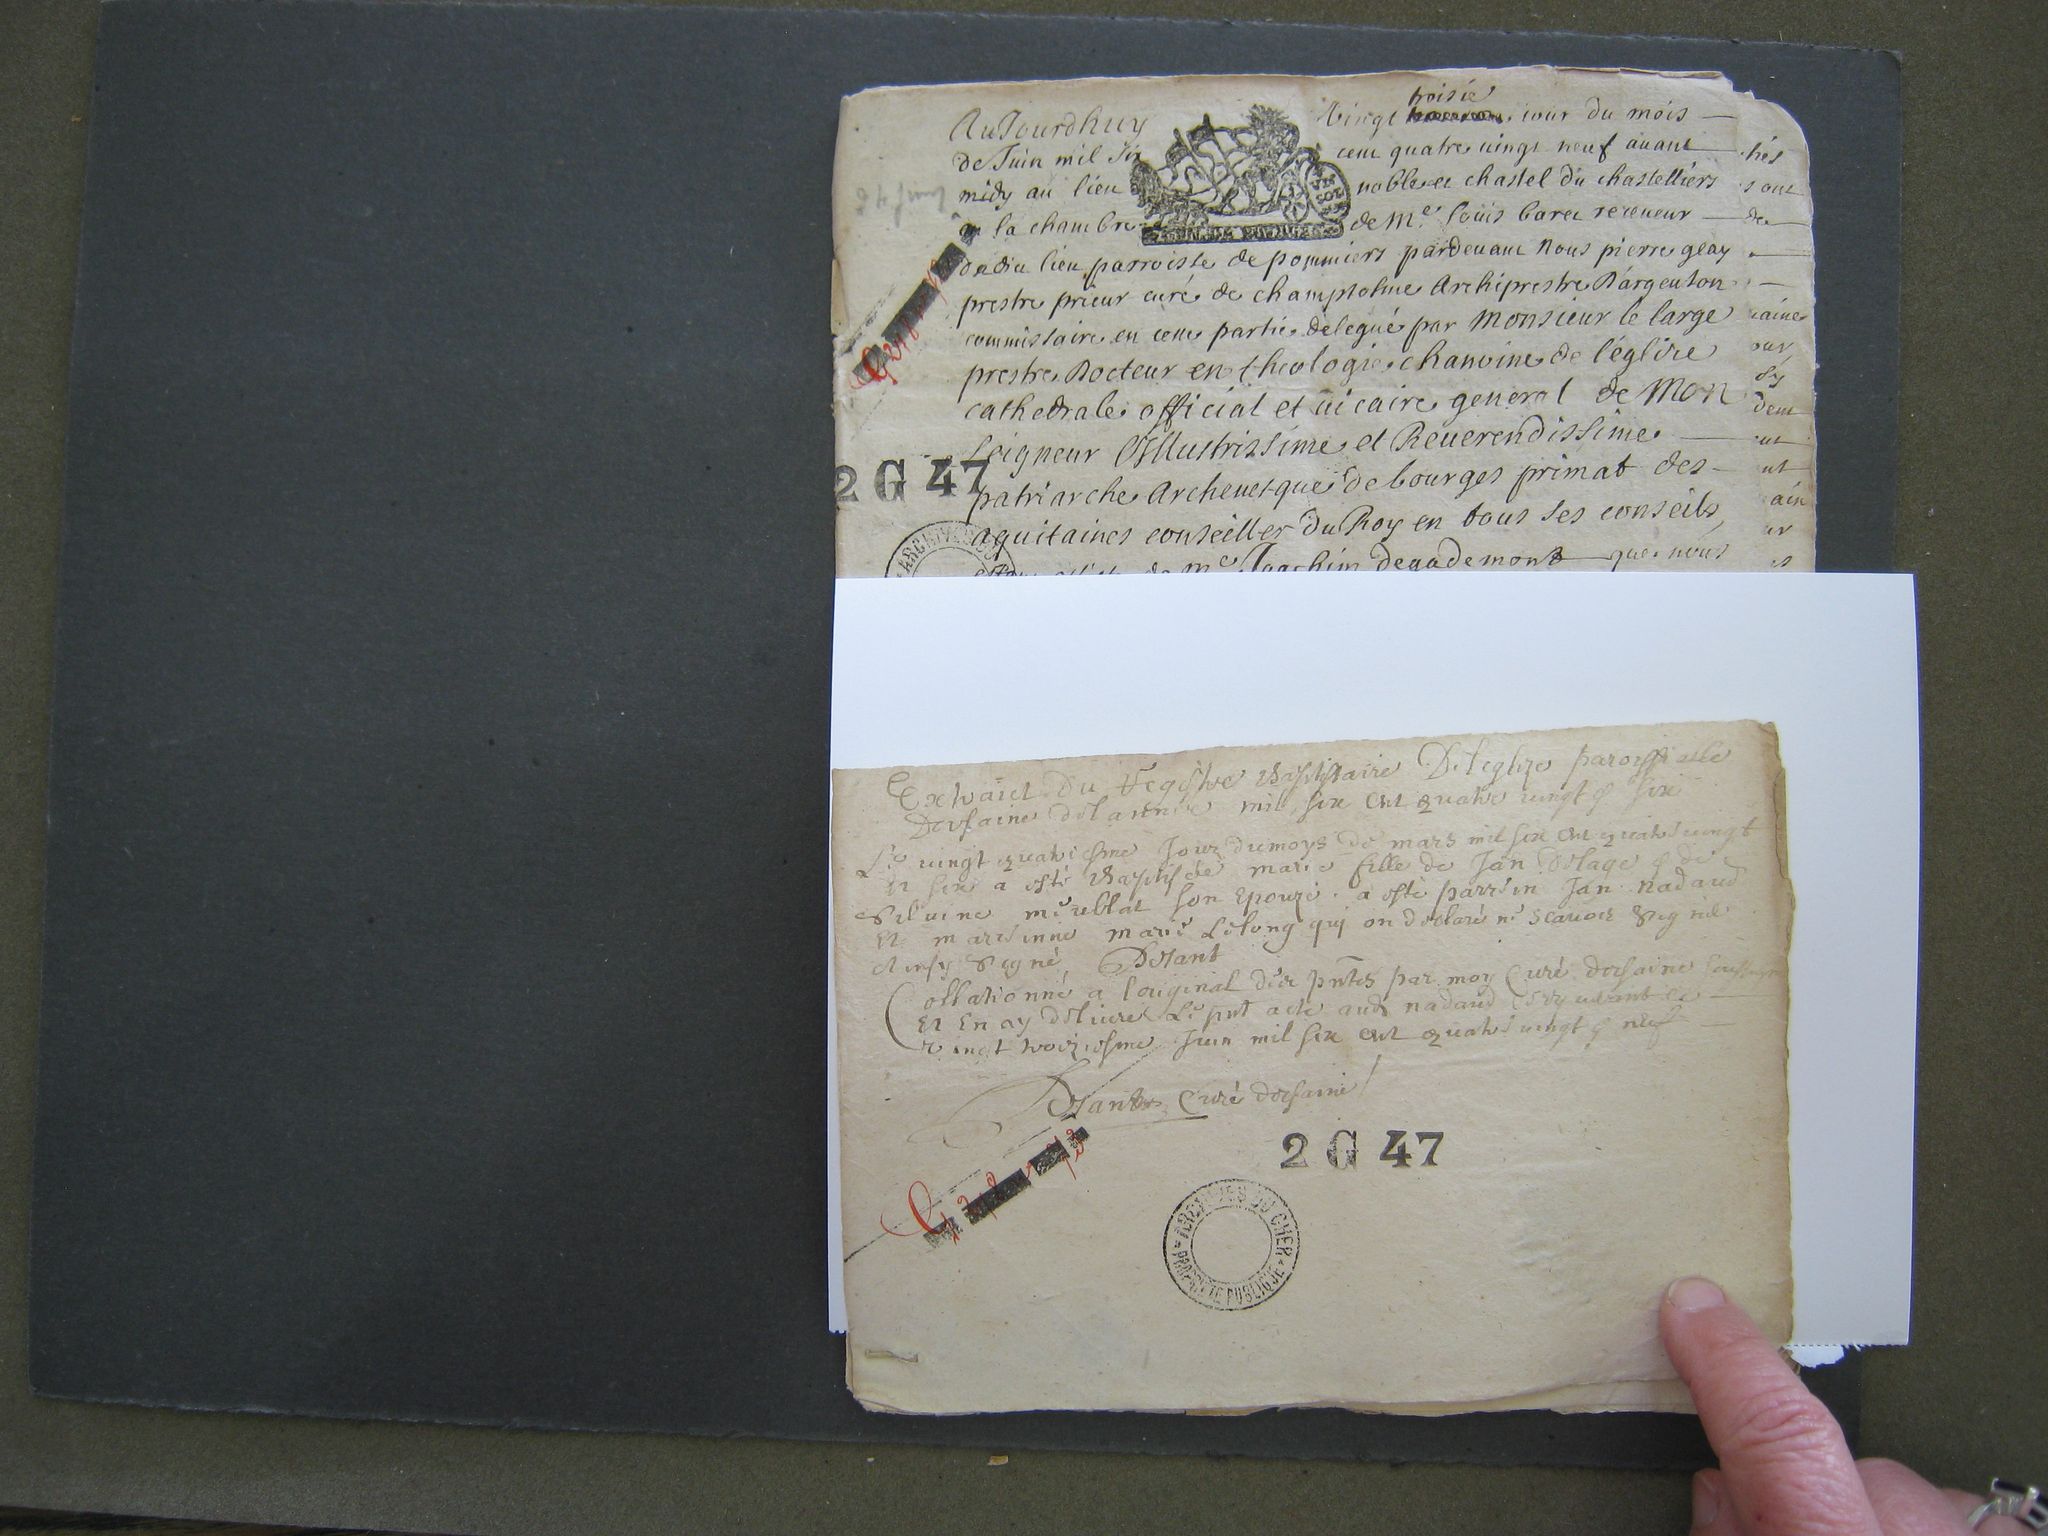 AuJourdhuy vingt troisie jour du mois
de Juin mil six cent quatre vingt neuf auant
midy au lieu noble et chastel du chastelliers
en la chambre de Me. louis baret receueur
dudit lieu parroisse de pommiers pardeuant Nous pierre geay
prestre prieur curé de champtolme Archiprestre Dargenton
commissaire en cette partie delegué par Monsieur le large
prestre Docteur en theologie chanoine de l'églize
cathedrale official et uicaire general de Mon
seigneur L'Illustrissime et Reuerendissime
patriarche Archeuesque de bourges primat des
aquitaines conseiller du Roy en tous ses conseils
de Me Joachim que nous
2 G 47
ARCHIVES DU
Extraict Du Registre Baptistaire De leglize paroissialle
Dorsaine de lannee mil six cent quatre vingt & six
Le vingt quatriesme Jour du moys de mars mil six cent quatre vingt
et six a esté Baptisée marie fille de Jan Delage & de
Siluine meublat son Epouze a esté parrein Jan nadaud
et marrinne marie Lelong qui on declaré ne scauoir signé
Ainsy Signé Dorant
Collationné a l'original des pntes par moy Curé dorsaine soussigné
et en ay deliuré le pnt acte aud nadaud ce requerant ce
vingt troiziesme Juin mil six cent quatre vingt & neuf
Curé dorsaine
2 G 47
ARCHIVES DU CHER
PROPRIETE PUBLIQUE